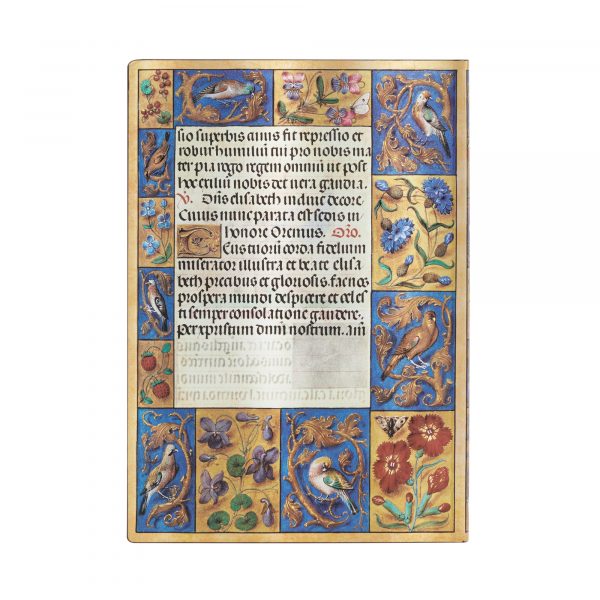 sio superbis cuius fit repressio et
robur humiliū tu pio nobis ma
ter pia rogo regem omniū ut post
hoc exiliū nobis det vera gaudia.
V. Dn̄s elisabeth induit decore
Cuius nunc parata est sedis in
honore Oremus. Orō.
DEus tuorū corda fidelium
miserator illustra et beate elisa
beth precibus et gloriosis. fac nos
prospera mundi despicere et celes
ti semper consolatione gaudere.
Per xpistum dn̄m nostrum. am̄